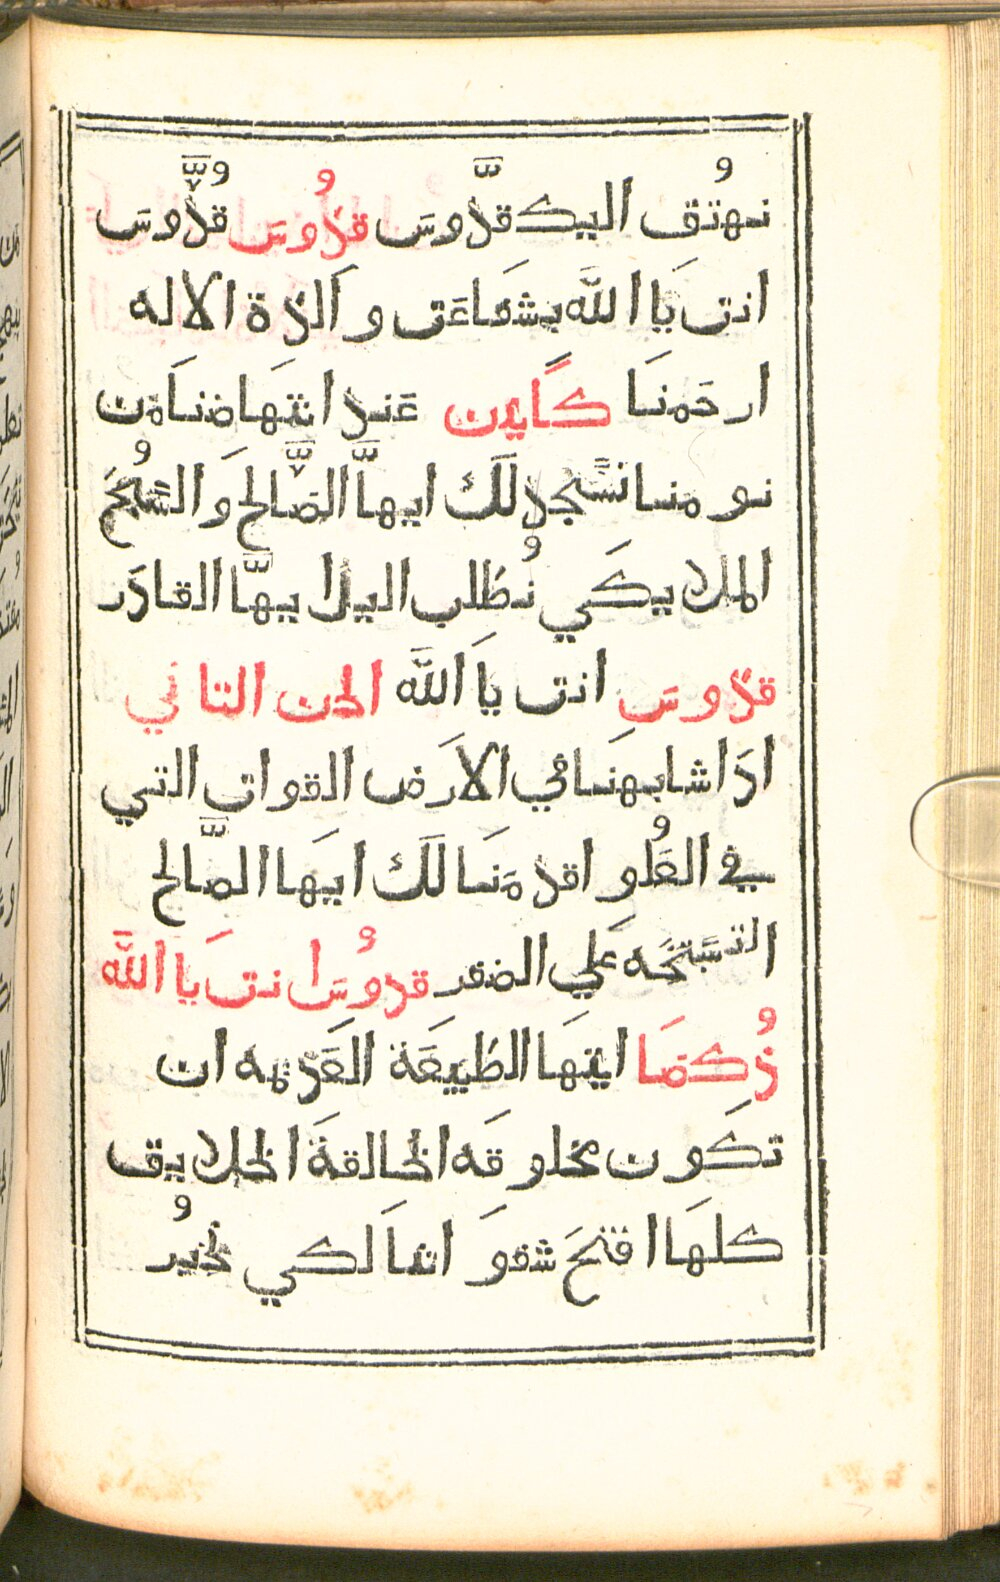 نهتف اليك قدّوسَ قدُوسَ قُدّوسَ
انت يَا اللَّه بشفاعَت و الدَة الاله
ارحَمنَا كًاين عَند انتهَاضنَا من
نومنا نسًجد لَك ايهاَّ الصَّالح وَ السُبَح
الملا يكَي نُطلب اليك ا يهاَّ القادَر
قدوسَ انت يَا اللَّه الحن التاني
ادَ اشا بهنَا في الارَض القوات التي
في العَُلو اقد مَنَا لَك ايهَا الصَّالح
التسًبَحَه عَلي الضفر قدوُسَ انت يَا اللَّه
دُكصَا ايتهَا الطبيعَة الغَيرمه ان
تكَون مخلوقَه الخالقةَ الخلايق
كلهَا افتحَ شفوَ اتنَا لكي نخبُر